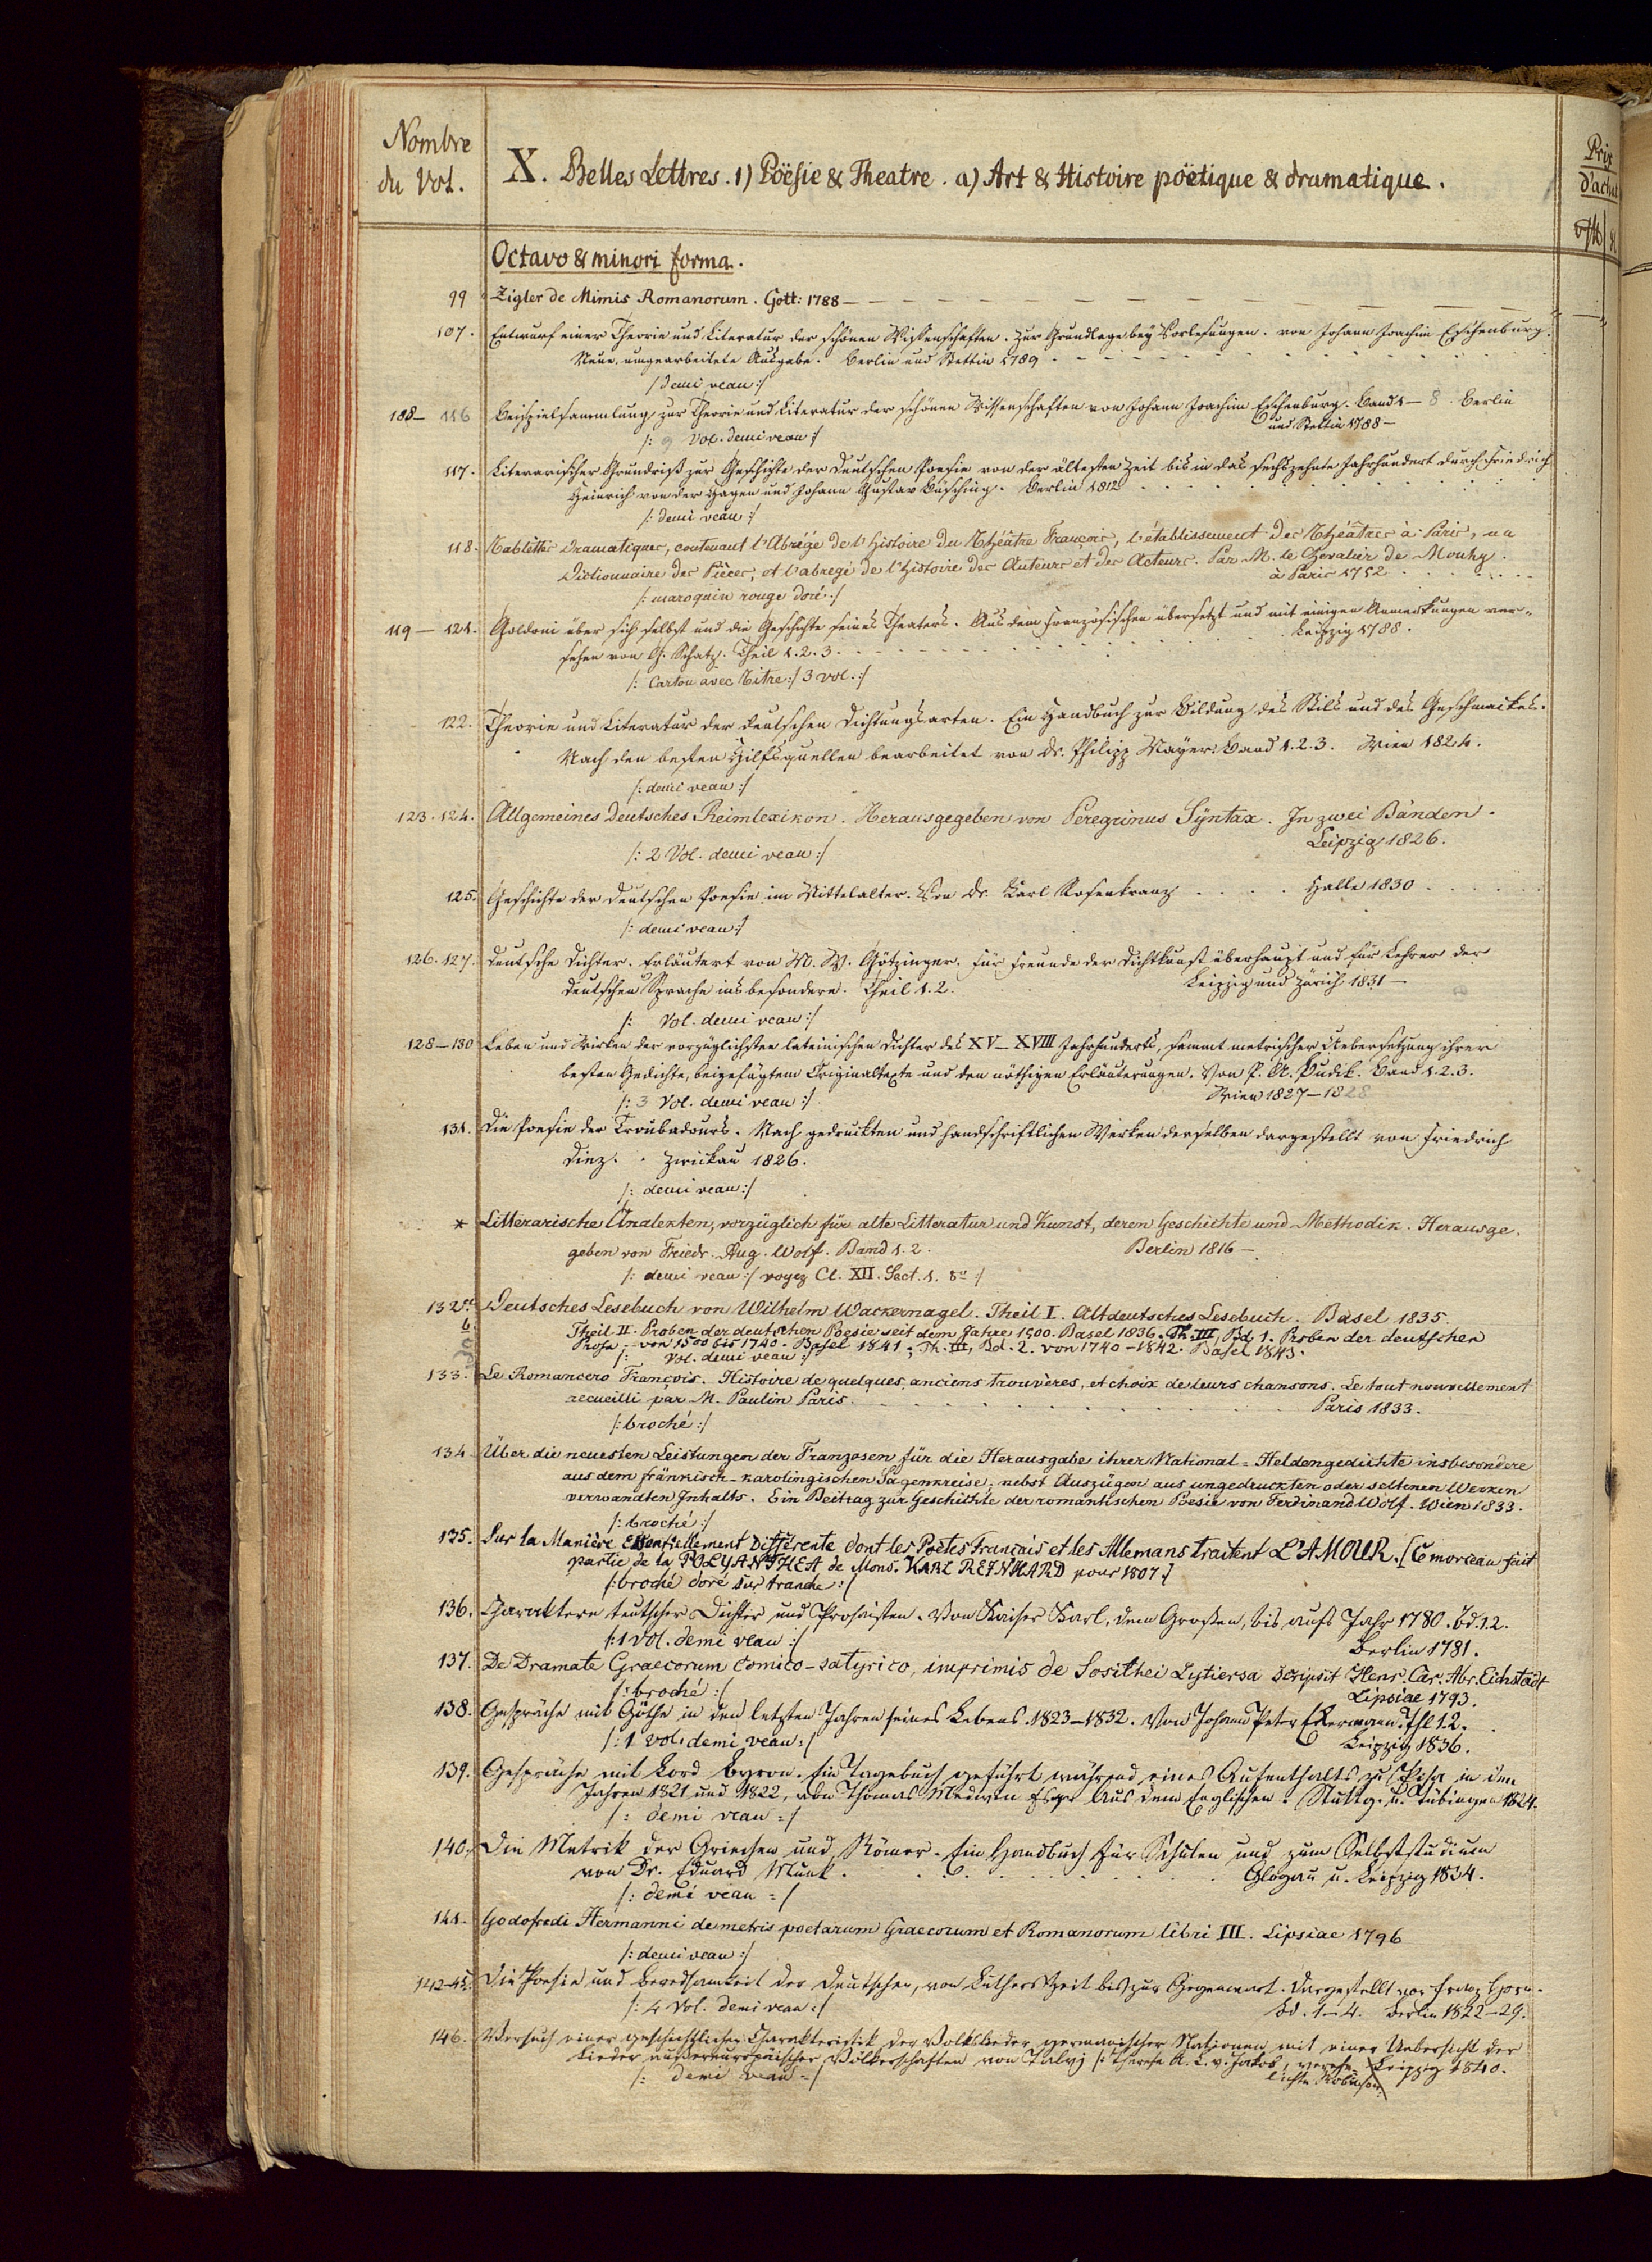 Nombre
du Vol.
X. Belles Lettres. 1) Pöësie & Theatre. a) Art & Histoire pöetique & dramatique.
Prix
Octavo & minori forma.
99 Zigler de Mimis Romanorum. Gott: 1788 —
107. Entwurf einer Theorie und Literatur der schönen Wissenschaften. Zur Grundlage bey Vorlesungen. von Johann Joachim Eschenburg.
Neue, umgearbeitete Ausgabe. Berlin und Stettin 1789
/: demi veau :/
108 — 116 Beispielsammlung zur Theorie und Literatur der schönen Wissenschaften von Johann Joachim Eschenburg. Band 1 — 8. Berlin
und Stettin 1788 —
/: 9 Vol. demi veau :/
117. Literarischer Grundriß zur Geschichte der Deutschen Poesie von der ältesten Zeit bis in das sechszehnte Jahrhundert durch Friedrich
Heinrich von der Hagen und Johann Gustav Büsching. Berlin 1812
/: demi veau :/
118. Tablettes Dramatiques, contenant l'Abrégé de l'Histoire du Théâtre François, l'établissement des Théatres à Paris, un
Dictionnaire des Pièces, et l'abregé de l'Histoire des Auteurs et des Acteurs. Par M. le Chevalier de Mouhy.
à Paris 1752
/: maroquin rouge doré :/
119 — 121. Goldoni über sich selbst und die Geschichte seines Theaters. Aus dem Französischen übersetzt und mit einigen Anmerkungen ver-
sehen von G. Schatz. Theil 1. 2. 3. Leipzig 1788.
/: Carton avec Titre :/ 3 vol. :/
122. Theorie und Literatur der deutschen Dichtungsarten. Ein Handbuch zur Bildung des Stils und des Geschmackes.
Nach den besten Hilfsquellen bearbeitet von Dr. Philipp Mayer. Band 1. 2. 3. Wien 1824.
/: demi veau :/
123. 124. Allgemeines Deutsches Reimlexikon. Herausgegeben von Peregrinus Syntax. In zwei Bänden.
Leipzig 1826.
/: 2 Vol. demi veau :/
125. Geschichte der Deutschen Poesie im Mittelalter. Von Dr. Karl Rosenkranz Halle 1830
/: demi veau :/
126. 127. Deutsche Dichter. Erläutert von M. W. Götzinger. Für Freunde der Dichtkunst überhaupt und für Lehrer der
deutschen Sprache insbesondere. Theil 1. 2. Leipzig und Zürich 1831 —
/: Vol. demi veau :/
128 — 130 Leben und Wirken der vorzüglichsten lateinischen Dichter des XV — XVIII Jahrhunderts, sammt metrischer Uebersetzung ihrer
besten Gedichte, beigefügtem Originaltexte und den nöthigen Erläuterungen. Von P. A. Budik. Band 1. 2. 3.
Wien 1827 — 1828
/: 3 Vol. demi veau :/
131. Die Poesie der Troubadours. Nach gedruckten und handschriftlichen Werken derselben dargestellt von Friedrich
Diez. Zwickau 1826.
/: demi veau :/
* Litterarische Analekten, vorzüglich für alte Litteratur und Kunst, deren Geschichte und Methodik. Herausge-
geben von Friedr. Aug. Wolf. Band 1. 2. Berlin 1816 —
/: demi veau :/ voyez Cl. XII. Sect. 1. 8° :/
132 Deutsches Lesebuch von Wilhelm Wackernagel. Theil I. Altdeutsches Lesebuch. Basel 1835.
b. Theil II. Proben der deutschen Poesie seit dem Jahre 1500. Basel 1836. Th. III, Bd. 1. Proben der deutschen
Prosa von 1500 bis 1740. Basel 1841; Th. III, Bd. 2. von 1740 – 1842. Basel 1843.
/: Vol. demi veau :/
133. Le Romancero François. Histoire de quelques anciens trouvères, et choix de leurs chansons. Le tout nouvellement
recueilli par M. Paulin Paris. Paris 1833.
/: broché :/
134. Über die neuesten Leistungen der Franzosen für die Herausgabe ihrer National-Heldengedichte insbesondere
aus dem fränkisch-karolingischen Sagenkreise; nebst Auszügen aus ungedruckten oder seltenen Werken
verwandten Inhalts. Ein Beitrag zur Geschichte der romantischen Poesie von Ferdinand Wolf. Wien 1833.
/: broché :/
135. Sur la Manière Essentiellement Différente dont les Poëtes Français et les Allemans traitent L'AMOUR. [Ce morceau fait
partie de la POLYANTHEA de Mons. KARL REINHARD pour 1807.]
/: broché doré sur tranche :/
136. Charaktere teutscher Dichter und Prosaisten. Von Kaiser Karl, dem Großen, bis aufs Jahr 1780. Bd. 1. 2.
Berlin 1781.
/: 1 Vol. demi veau :/
137. De Dramate Graecorum comico-satyrico, imprimis de Sosithei Lytiersa scripsit Henr. Car. Abr. Eichstädt
Lipsiae 1793.
/: broché :/
138. Gespräche mit Göthe in den letzten Jahren seines Lebens. 1823 – 1832. Von Johann Peter Eckermann. Thl 1. 2.
Leipzig 1836.
/: 1 vol. demi veau :/
139. Gespräche mit Lord Byron. Ein Tagebuch geführt während eines Aufenthalts zu Pisa in den
Jahren 1821 und 1822, von Thomas Medwin Esqr. Aus dem Englischen. Stuttg. u. Tübingen 1824.
/: demi veau :/
140. Die Metrik der Griechen und Römer. Ein Handbuch für Schulen und zum Selbststudium
von Dr. Eduard Munk. Glogau u. Leipzig 1834.
/: demi veau :/
141. Godofredi Hermanni de metris poetarum Graecorum et Romanorum libri III. Lipsiae 1796
/: demi veau :/
142-45. Die Poesie und Beredsamkeit der Deutschen, von Luthers Zeit bis zur Gegenwart. Dargestellt von Franz Horn.
Bd. 1 – 4. Berlin 1822 – 29.
/: 4 Vol. demi veau :/
146. Versuch einer geschichtlichen Charakteristik der Volkslieder germanischer Nationen mit einer Uebersicht der
Lieder aussereuropäischer Völkerschaften von Talvj /: Therese A. L. v. Jakob, verehe- Leipzig 1840.
lichte Robinson.
/: demi veau :/